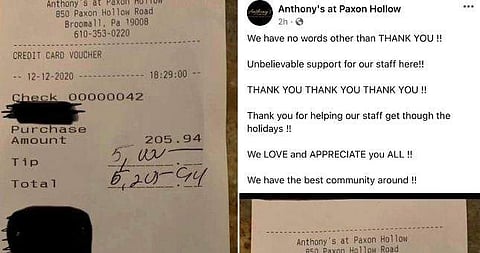 Anthony's at Paxon Hollow
850 Paxon Hollow Road
Broomall, Pa 19008
610-353-0220
CREDIT CARD VOUCHER
12-12-2020 18:29:00
Check 00000042
Purchase
Amount 205.94
Tip 5,000
Total 5,205.94
Anthony's at Paxon Hollow
2h ·
We have no words other than THANK YOU !!
Unbelievable support for our staff here!!
THANK YOU THANK YOU THANK YOU !!
Thank you for helping our staff get though the
holidays !!
We LOVE and APPRECIATE you ALL !!
We have the best community around !!
Anthony's at Paxon Hollow
850 Paxon Hollow Road